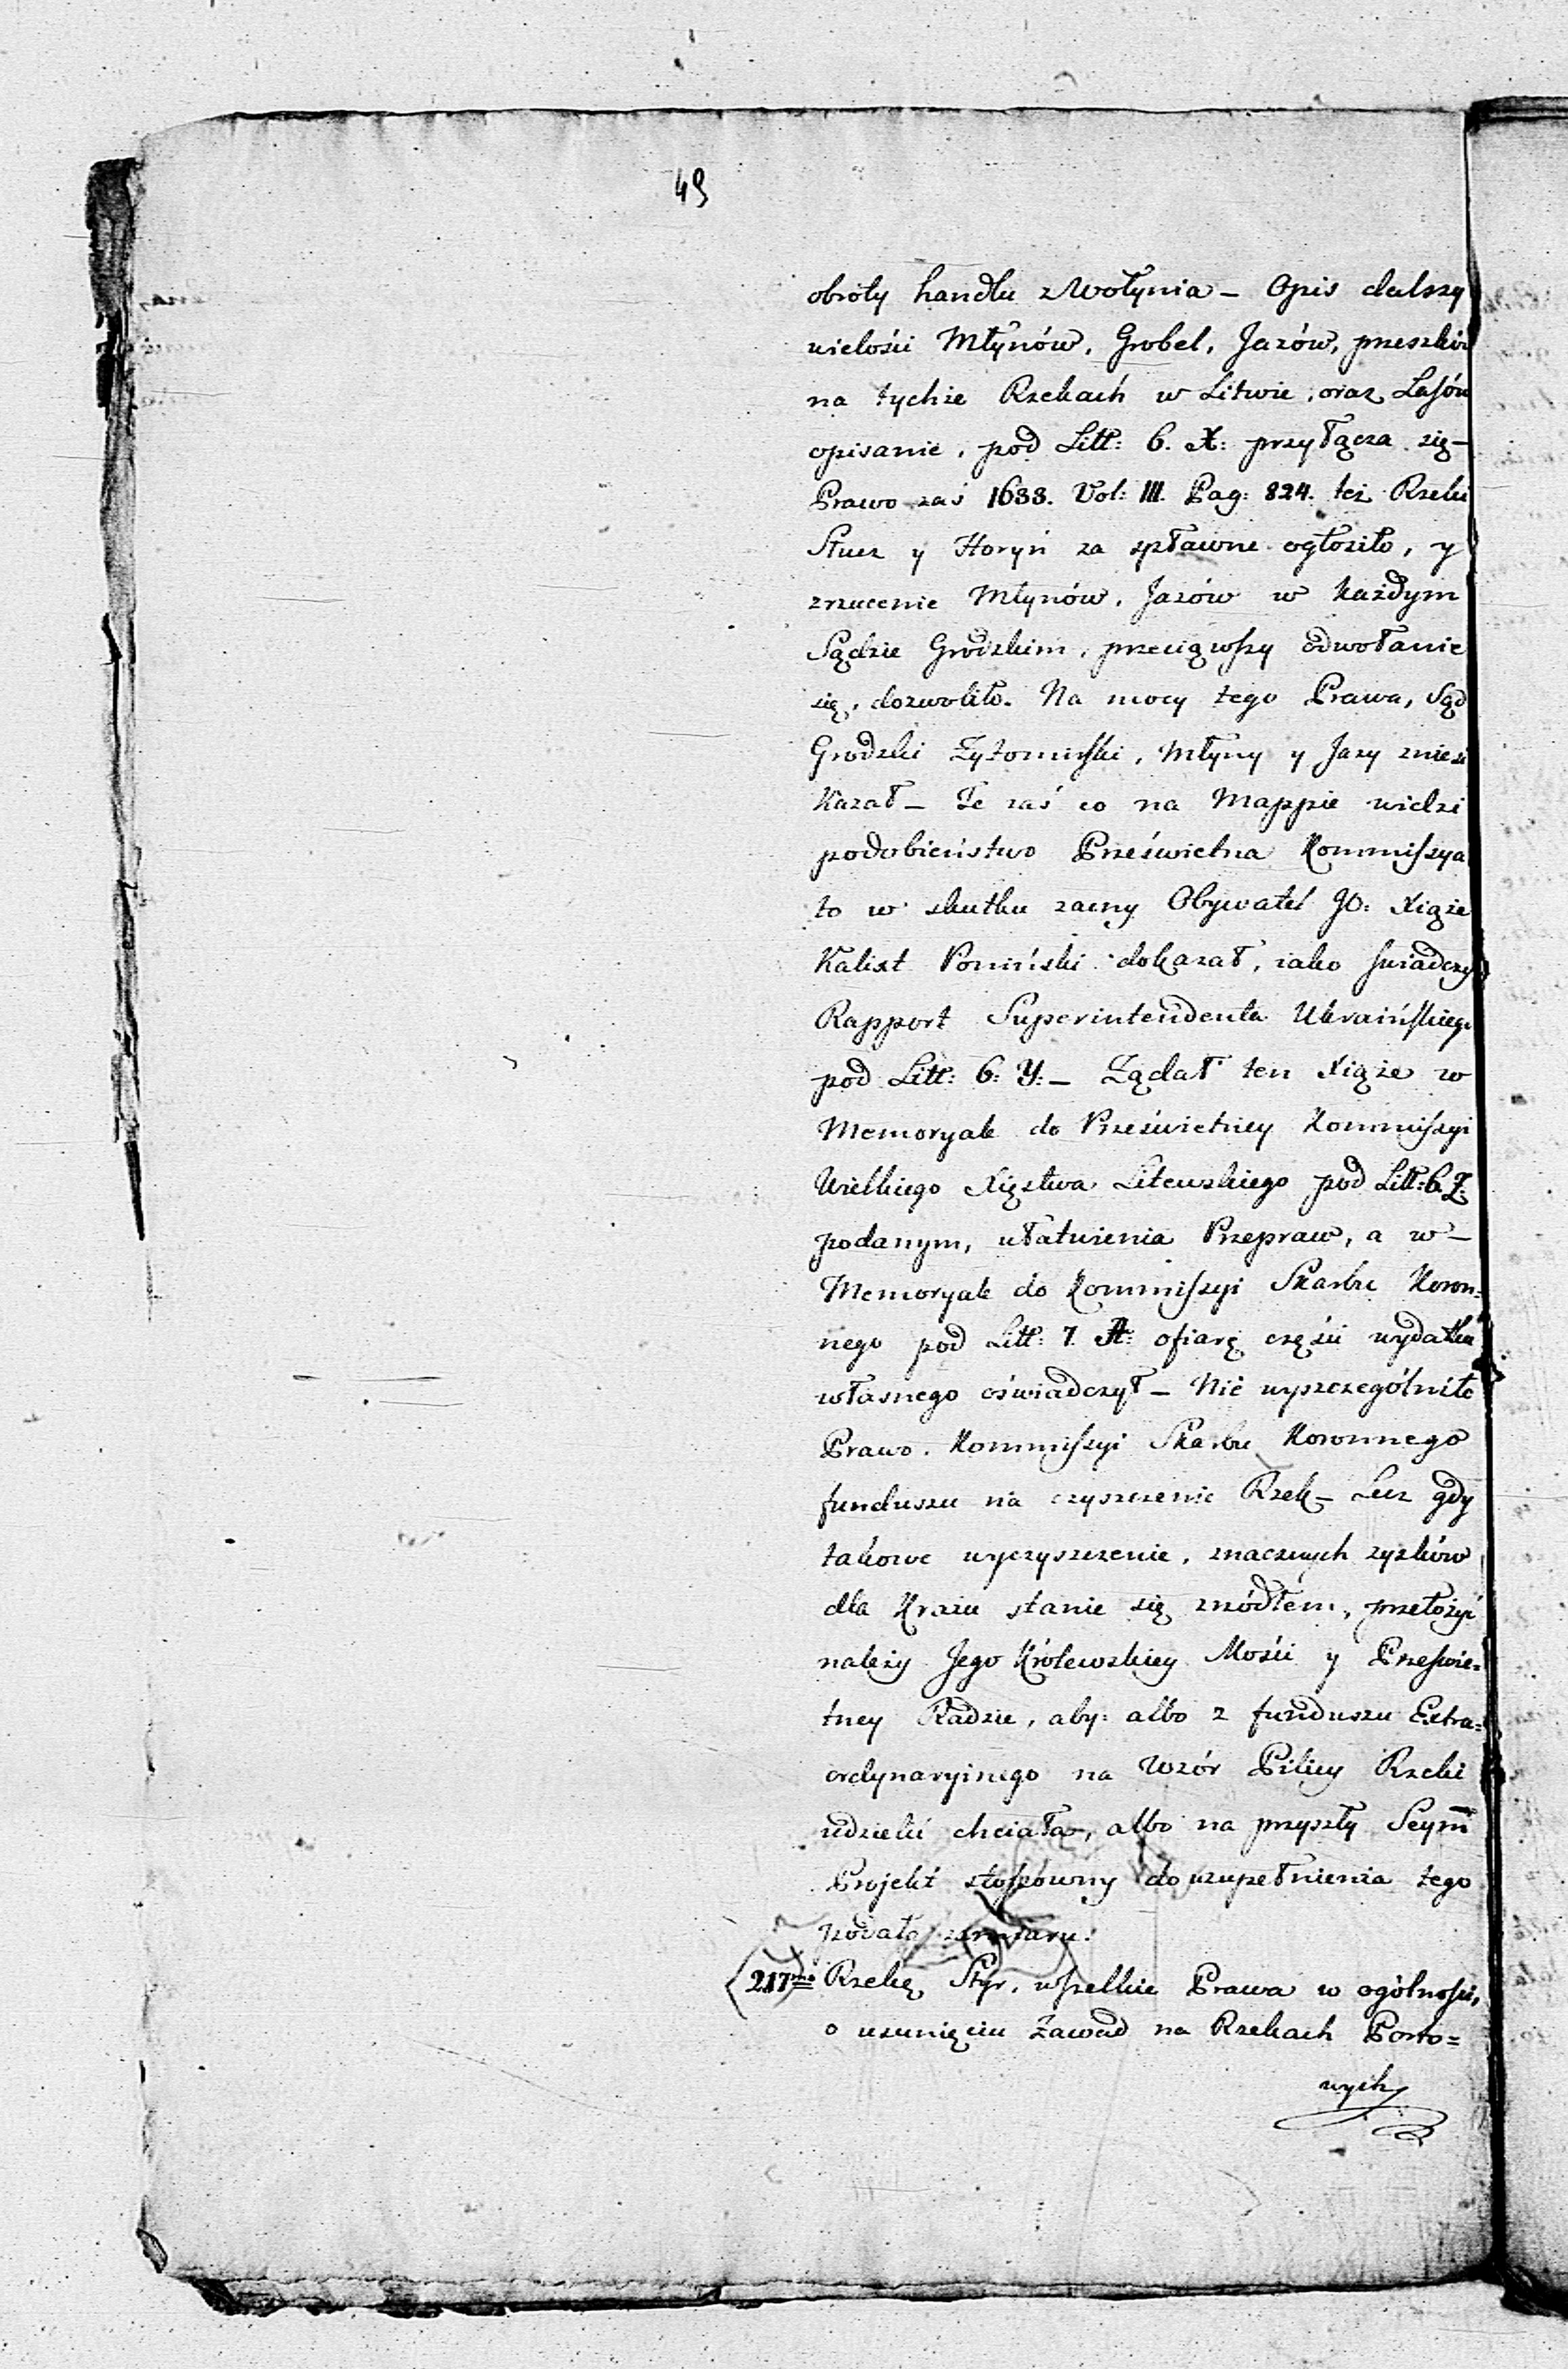 49
obroty handlu z Wołynia – Opis dalszy
wielości Młynów, Grobel, Jazów, przeszkód
na tychże Rzekach w Litwie, oraz Lasów
opisanie, pod Litt: 6. X: przyłącza się –
Prawo zaś 1633. Vol: III. Pag: 824. też Rzeki
Słucz y Horyń za spławne ogłosiło, y
zrzucenie Młynów, Jazów w każdym
Sądzie Grodzkim, przeciąwszy odwołanie
się, dozwoliło. Na mocy tego Prawa, Sąd
Grodzki Żytomirski, Młyny y Jazy znieść
Kazał – Te zaś co na Mappie widzi
podobieństwo Prześwietna Kommissya
to w skutku zacny Obywatel JO: Xiąże
Kalixt Poniński dokazał, iako świadczy
Rapport Superintendenta Ukraińskiego
pod Litt: 6: Y: – Żądał ten Xiąże w
Memoryale do Prześwietney Kommissyi
Wielkiego Xięstwa Litewskiego pod Litt: 6. Z.
podanym, ułatwienia Przepraw, a w –
Memoryale do Kommissyi Skarbu Koron=
nego pod Litt: 7. A: ofiarę części wydatku
własnego oświadczył – Nie wyszczególniło
Prawo. Kommissyi Skarbu Koronnego
funduszu na czyszczenie Rzek – Lecz gdy
takowe wyczyszczenie, znacznych zysków
dla Kraiu stanie się zrzódłem, przełożyć
należy Jego Królewskiey Mości y Prześwie=
tney Radzie, aby: albo z funduszu Extra=
ordynaryinego na wzór Pilicy Rzeki
udzielić chciała, albo na przyszły Seym
Projekt stosowny do uzupełnienia tego
podała zamiaru.
217mo Rzekę Styr, wszelkie Prawa w ogólności,
o usunięciu Zawad na Rzekach Porto=
wych